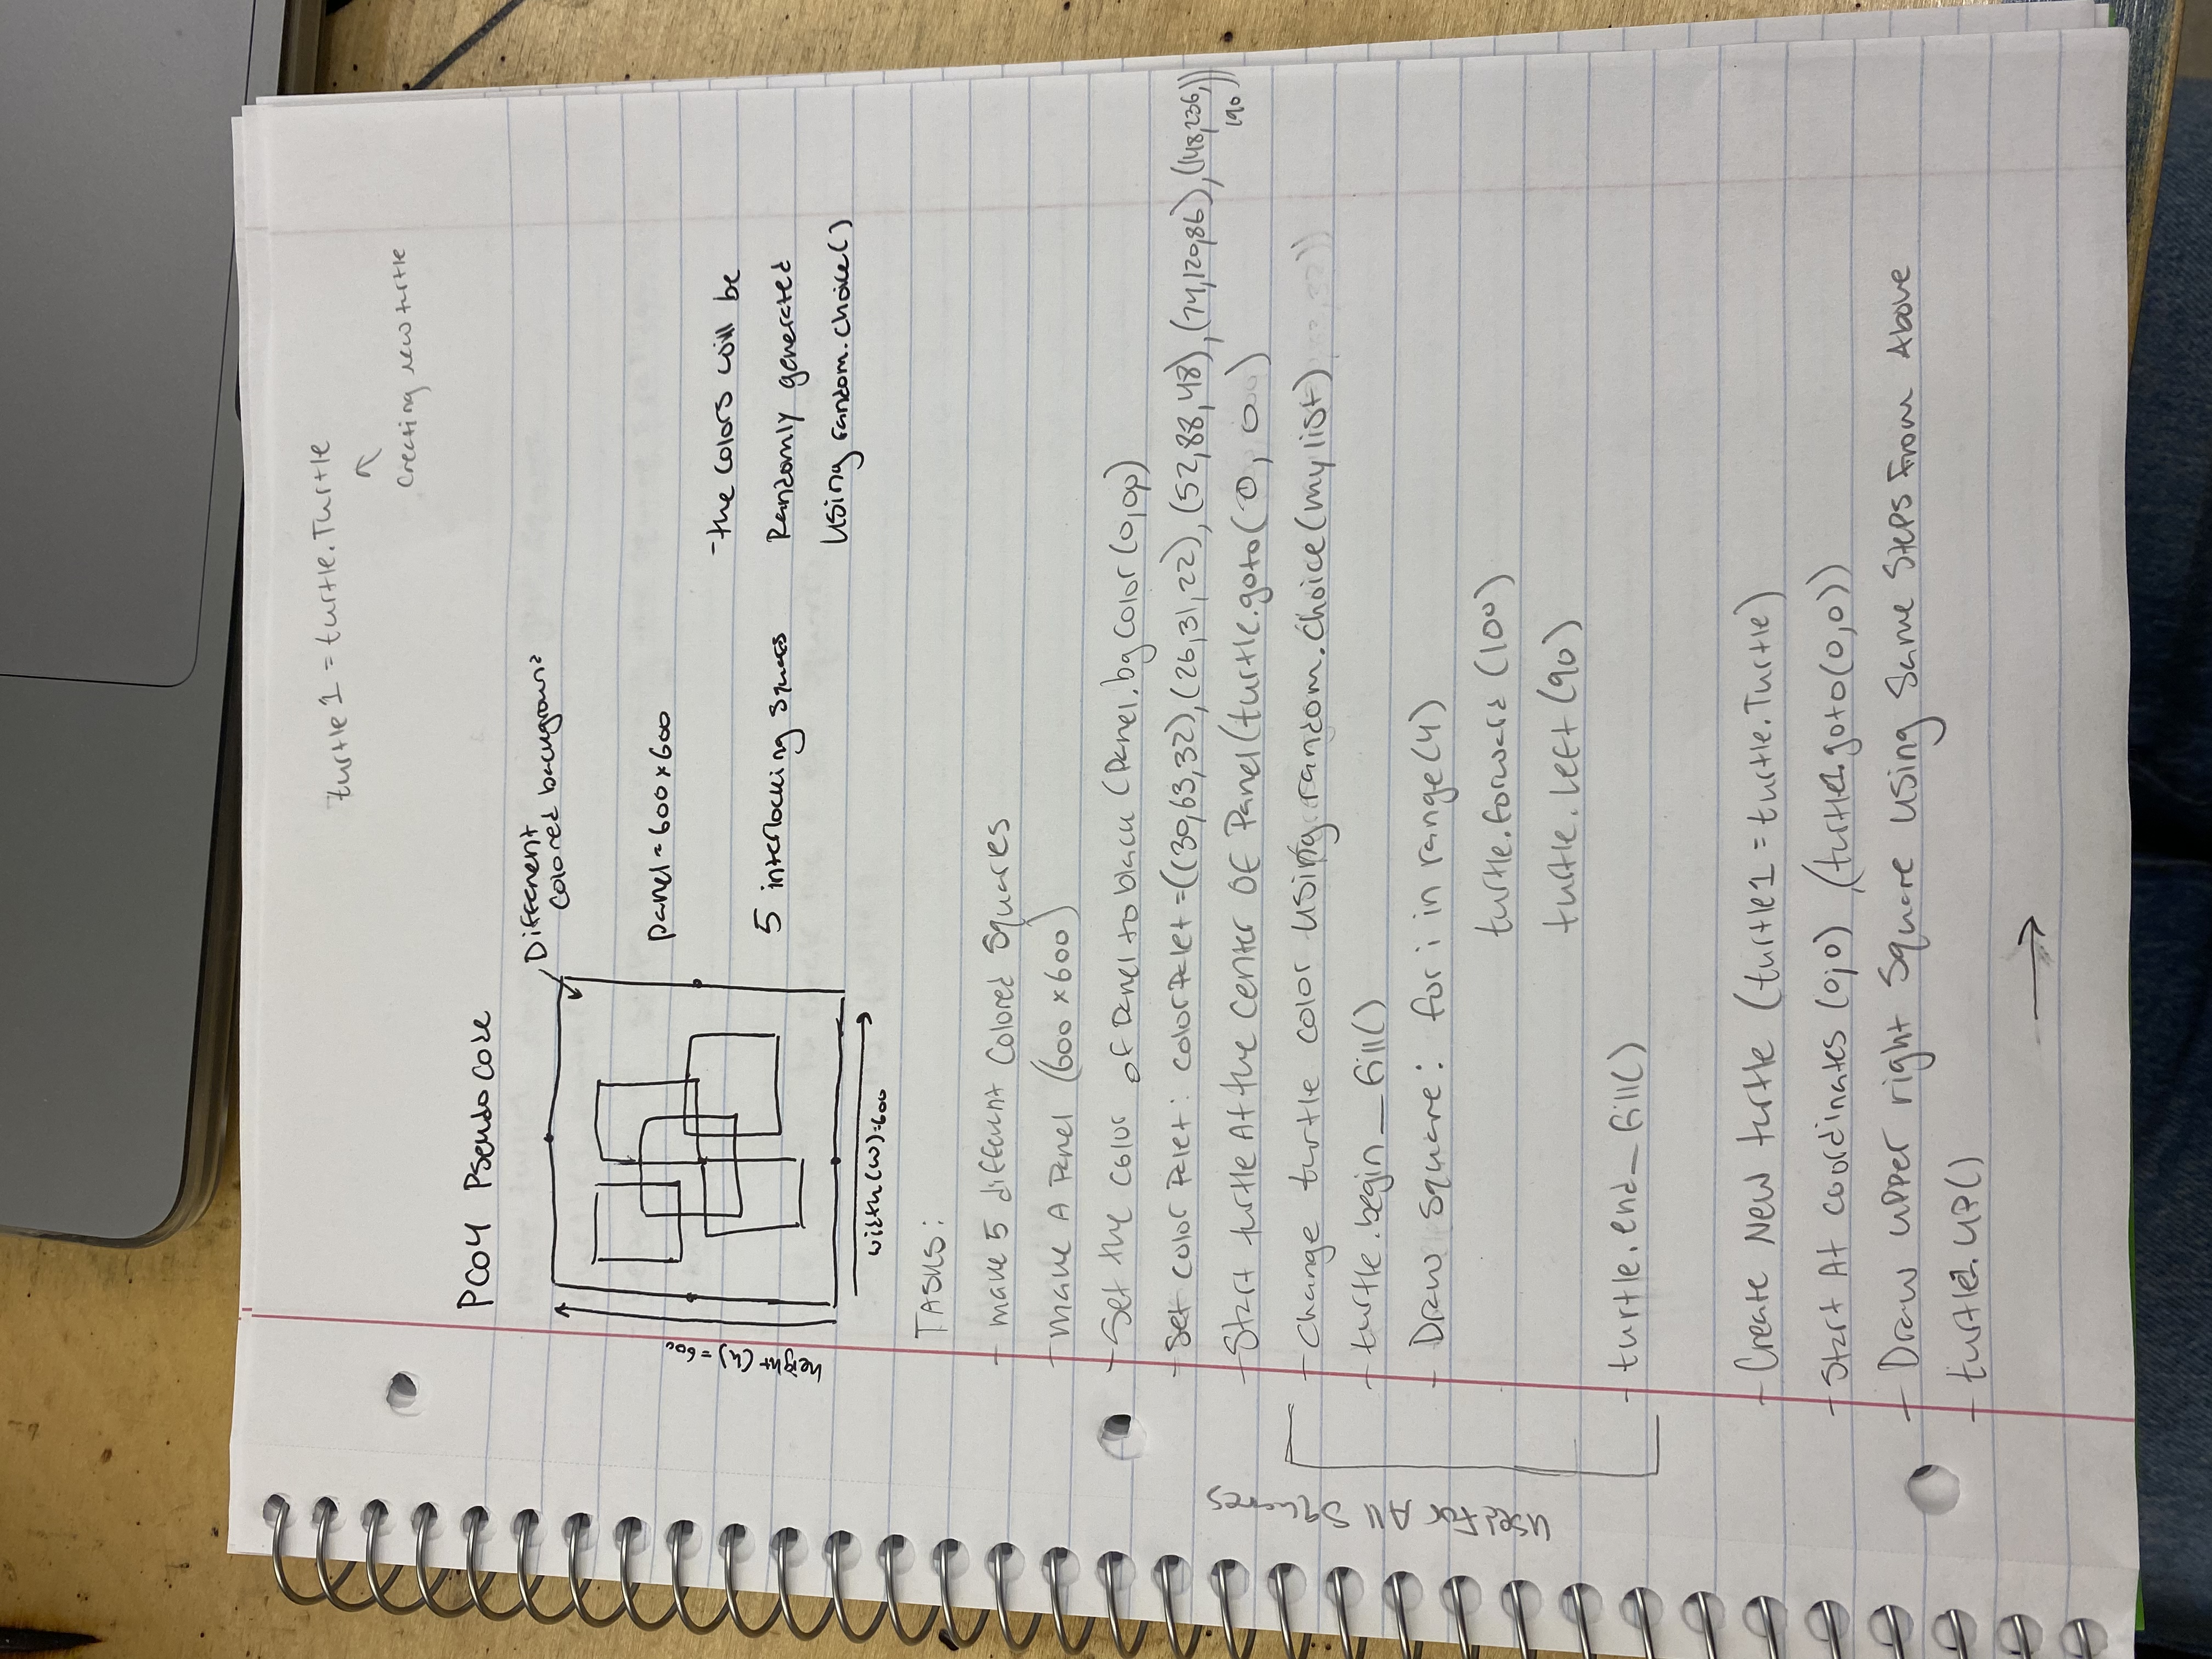 turtle1 = turtle.Turtle
Creating new turtle
PC04 Pseudo Code
Different
colored background
height (h) = 600
panel = 600 x 600
5 interlocking squares
-the colors will be
Randomly generated
Using random.choice()
width (w) = 600
TASKS:
- make 5 different colored squares
- make A Panel (600 x 600)
- Set the color of Panel to black (Panel.bgcolor(0,0,0)
- Set color Palet: colorPalet = ((30,63,32), (26,31,22), (52,88,48), (74,120,86), (148,236,
190))
- Start turtle At the center of Panel (turtle.goto(0, 0)
Used For All Squares
- change turtle color using random.choice(mylist)
- turtle.begin_fill()
- Draw square: for i in range(4)
turtle.forward (100)
turtle.left (90)
- turtle.end_fill()
- Create New turtle (turtle1 = turtle.Turtle)
- Start At coordinates (0,0), (turtle1.goto(0,0))
- Draw upper right Square using Same Steps From Above
- turtle1.up()